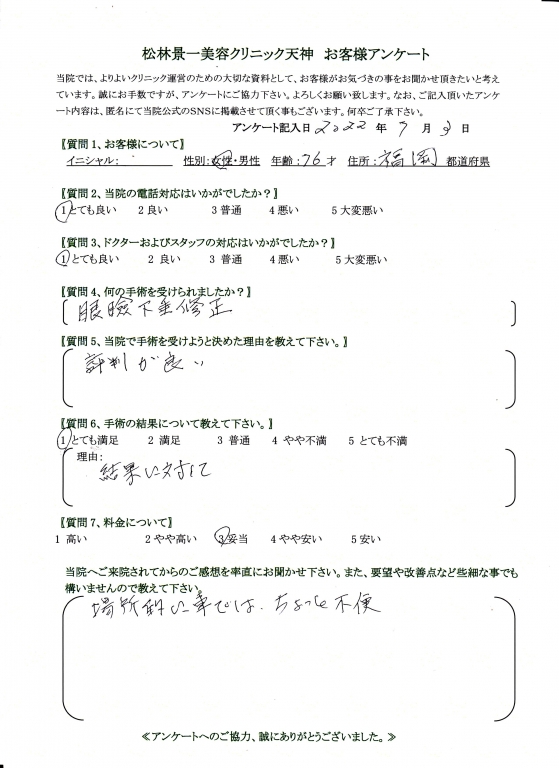 松林景一美容クリニック天神　お客様アンケート
当院では、よりよいクリニック運営のための大切な資料として、お客様がお気づきの事をお聞かせ頂きたいと考え
ています。誠にお手数ですが、アンケートにご協力下さい。よろしくお願い致します。なお、ご記入頂いたアンケ
ート内容は、匿名にて当院公式のSNSに掲載させて頂く事もございます。何卒ご了承下さい。
アンケート記入日 2022 年 7 月 3 日
〖質問1、お客様について〗
イニシャル： 性別：女性・男性 年齢：76 才 住所：福岡 都道府県
〖質問2、当院の電話対応はいかがでしたか？〗
1とても良い 2 良い 3 普通 4 悪い 5 大変悪い
〖質問3、ドクターおよびスタッフの対応はいかがでしたか？〗
1とても良い 2 良い 3 普通 4 悪い 5 大変悪い
〖質問4、何の手術を受けられましたか？〗
眼瞼下垂修正
〖質問5、当院で手術を受けようと決めた理由を教えて下さい。〗
評判が良い
〖質問6、手術の結果について教えて下さい。〗
1とても満足 2 満足 3 普通 4 やや不満 5 とても不満
理由：
結果に対して
〖質問7、料金について〗
1 高い 2 やや高い 3妥当 4 やや安い 5 安い
当院へご来院されてからのご感想を率直にお聞かせ下さい。また、要望や改善点など些細な事でも
構いませんので教えて下さい
場所的に車では、ちょっと不便
≪アンケートへのご協力、誠にありがとうございました。≫